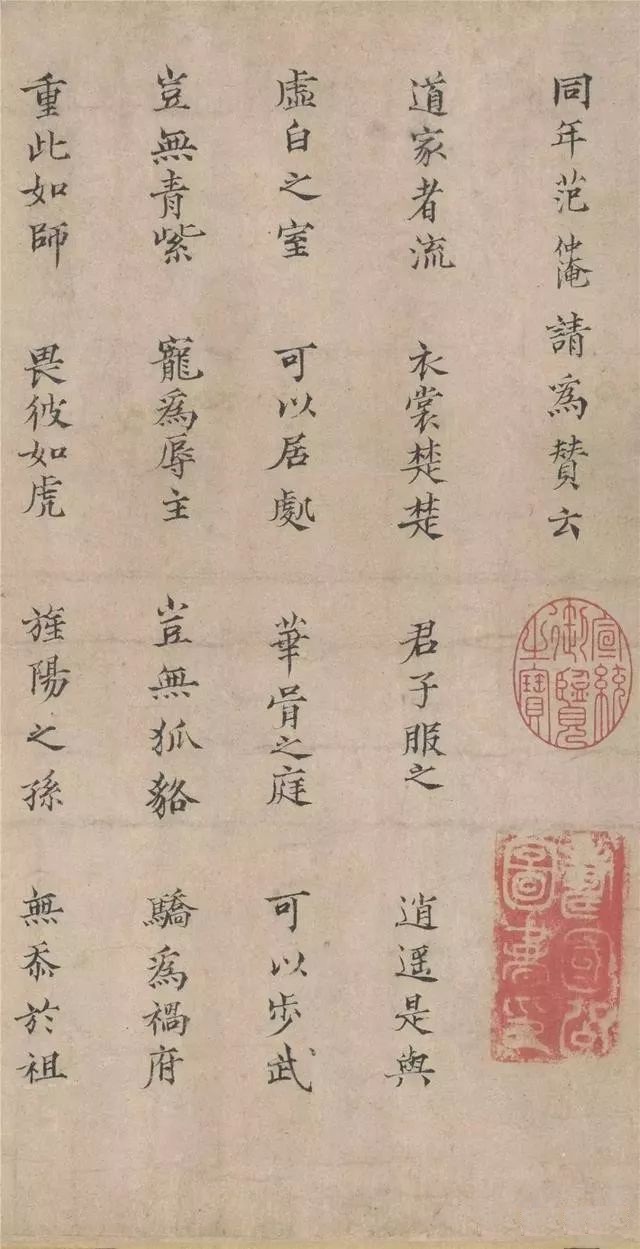 同年范仲淹請為賛云
道家者流 衣裳楚楚 君子服之 逍遥是與
虛白之室 可以居處 華胥之庭 可以步武
豈無青紫 寵為辱主 豈無狐貉 驕為禍府
重此如師 畏彼如虎 旌陽之孫 無忝於祖
宣統御覽之寶